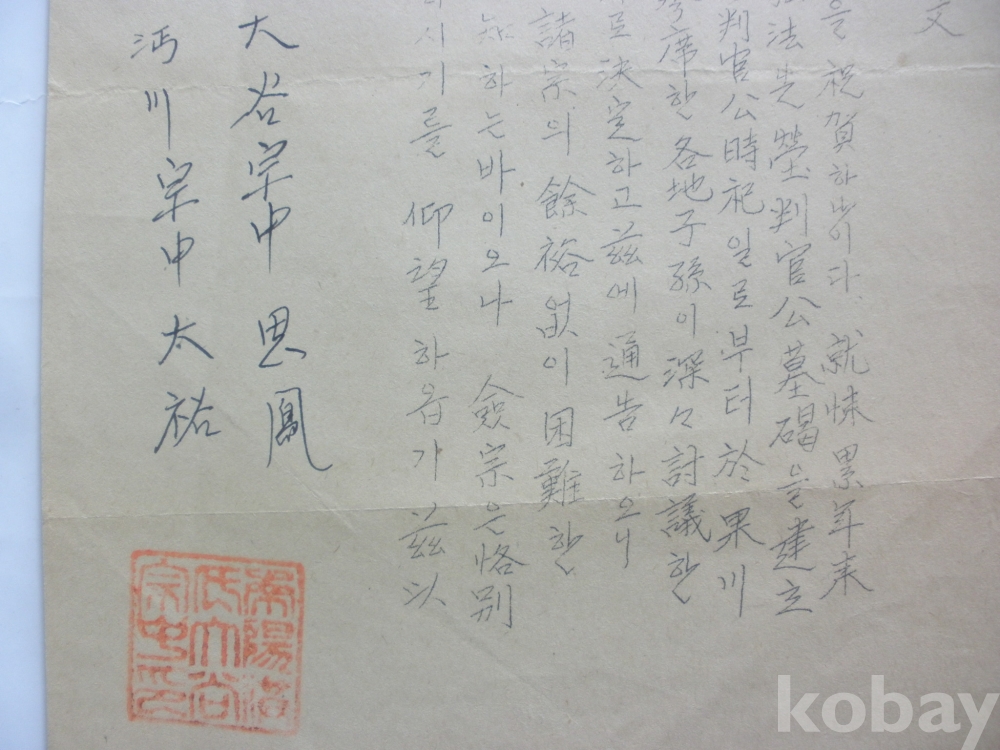 文
을 祝賀하나이다. 就悚累年末
法先塋判官公墓碣을建立
判官公時祀일로부터於果川
席한各地子孫이深々討議한
로決定하고玆에通告하오니
諸宗의餘裕없이困難할
知하는바이오나 僉宗은恪別
시기를 仰望하옵가玆以
大谷宗中 思鳳
沔川宗中太祐
南陽洪
氏大谷
宗中印
kobay